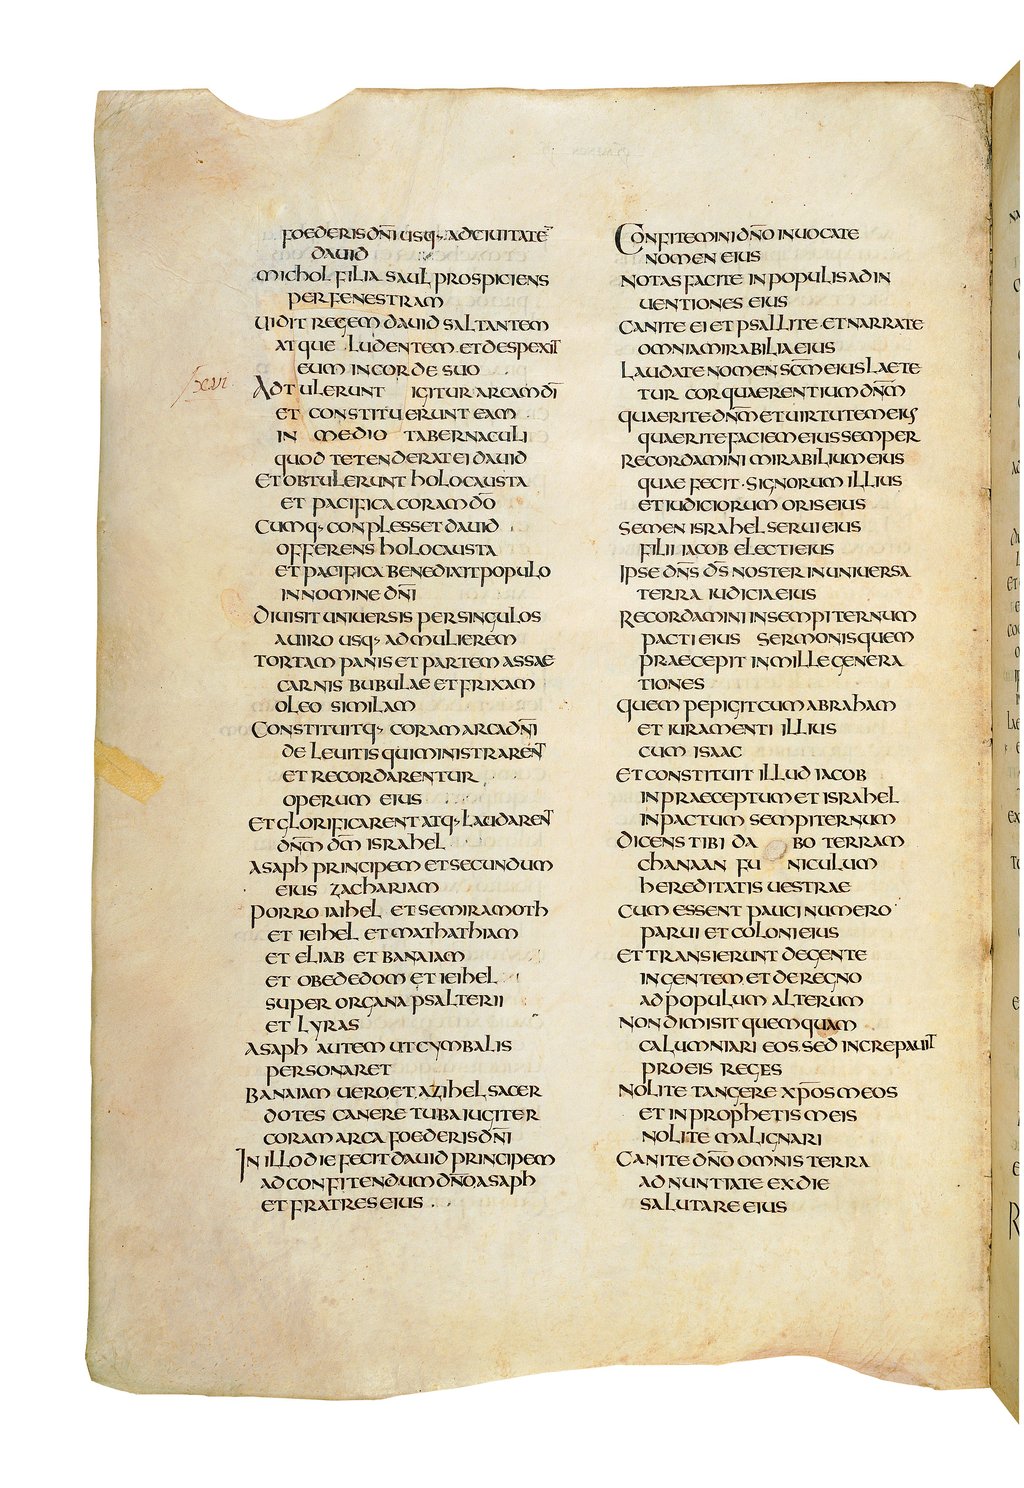 FOEDERIS DN̄I USQ· AD CIUITATĒ
DAUID
MICHOL FILIA SAUL PROSPICIENS
PER FENESTRAM
UIDIT REGEM DAUID SALTANTEM
ATQUE LUDENTEM ET DESPEXIT
EUM IN CORDE SUO
xvi
ADTULERUNT IGITUR ARCAM DĪ
ET CONSTITUERUNT EAM
IN MEDIO TABERNACULI
QUOD TETENDERAT EI DAUID
ET OBTULERUNT HOLOCAUSTA
ET PACIFICA CORAM DŌ
CUMQ· CONPLESSET DAUID
OFFERENS HOLOCAUSTA
ET PACIFICA BENEDIXIT POPULO
IN NOMINE DN̄I
DIUISIT UNIUERSIS PER SINGULOS
A UIRO USQ· AD MULIEREM
TORTAM PANIS ET PARTEM ASSAE
CARNIS BUBULAE ET FRIXAM
OLEO SIMILAM
CONSTITUITQ· CORAM ARCA DN̄I
DE LEUITIS QUI MINISTRARENT
ET RECORDARENTUR
OPERUM EIUS
ET GLORIFICARENT ATQ· LAUDARENT
DN̄M DM̄ ISRAHEL
ASAPH PRINCIPEM ET SECUNDUM
EIUS ZACHARIAM
PORRO IAIHEL ET SEMIRAMOTH
ET IEIHEL ET MATHATHIAM
ET ELIAB ET BANAIAM
ET OBEDEDOM ET IEIHEL
SUPER ORGANA PSALTERII
ET LYRAS
ASAPH AUTEM UT CYMBALIS
PERSONARET
BANAIAM UERO ET AZIHEL SACER
DOTES CANERE TUBA IUGITER
CORAM ARCA FOEDERIS DN̄I
IN ILLO DIE FECIT DAUID PRINCIPEM
AD CONFITENDUM DN̄O ASAPH
ET FRATRES EIUS
CONFITEMINI DN̄O INUOCATE
NOMEN EIUS
NOTAS FACITE IN POPULIS ADIN
UENTIONES EIUS
CANITE EI ET PSALLITE ET NARRATE
OMNIA MIRABILIA EIUS
LAUDATE NOMEN SCM̄ EIUS LAETE
TUR COR QUAERENTIUM DN̄M
QUAERITE DN̄M ET UIRTUTEM EIUS
QUAERITE FACIEM EIUS SEMPER
RECORDAMINI MIRABILIUM EIUS
QUAE FECIT· SIGNORUM ILLIUS
ET IUDICIORUM ORIS EIUS
SEMEN ISRAHEL SERUI EIUS
FILII IACOB ELECTI EIUS
IPSE DN̄S DS̄ NOSTER IN UNIUERSA
TERRA IUDICIA EIUS
RECORDAMINI IN SEMPITERNUM
PACTI EIUS SERMONIS QUEM
PRAECEPIT IN MILLE GENERA
TIONES
QUEM PEPIGIT CUM ABRAHAM
ET IURAMENTI ILLIUS
CUM ISAAC
ET CONSTITUIT ILLUD IACOB
IN PRAECEPTUM ET ISRAHEL
IN PACTUM SEMPITERNUM
DICENS TIBI DA BO TERRAM
CHANAAN FU NICULUM
HEREDITATIS UESTRAE
CUM ESSENT PAUCI NUMERO
PARUI ET COLONI EIUS
ET TRANSIERUNT DE GENTE
IN GENTEM ET DE REGNO
AD POPULUM ALTERUM
NON DIMISIT QUEMQUAM
CALUMNIARI EOS SED INCREPAUIT
PRO EIS REGES
NOLITE TANGERE XP̄OS MEOS
ET IN PROPHETIS MEIS
NOLITE MALIGNARI
CANITE DN̄O OMNIS TERRA
ADNUNTIATE EX DIE
SALUTARE EIUS